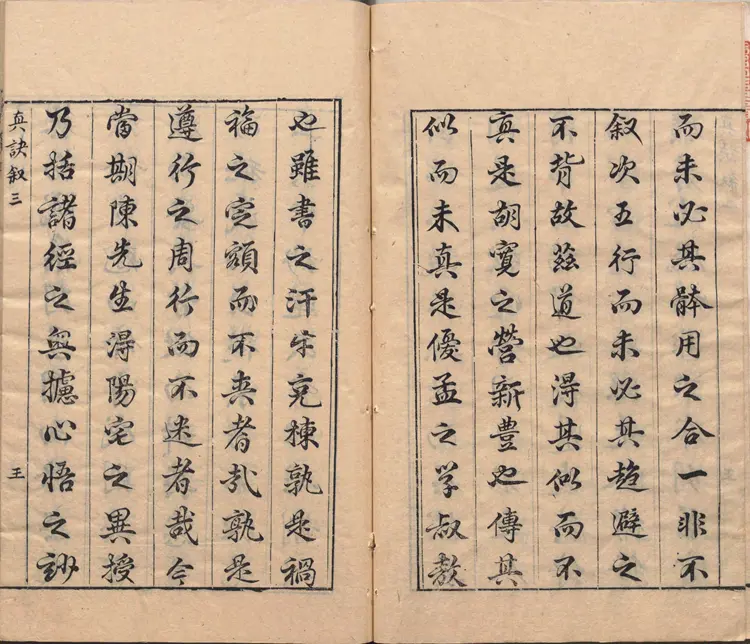 而未必其體用之合一非不
叙次五行而未必其趨避之
不背故茲道也得其似而不
真是胡寬之營新豐也傳其
似而未真是優孟之学叔敖
也雖書之汗牛充棟孰是禍
福之定額而不爽者孰是
遵行之周行而不迷者哉今
當期陳先生得陽宅之異授
乃括諸經之奧攄心悟之妙
真訣叙三
王